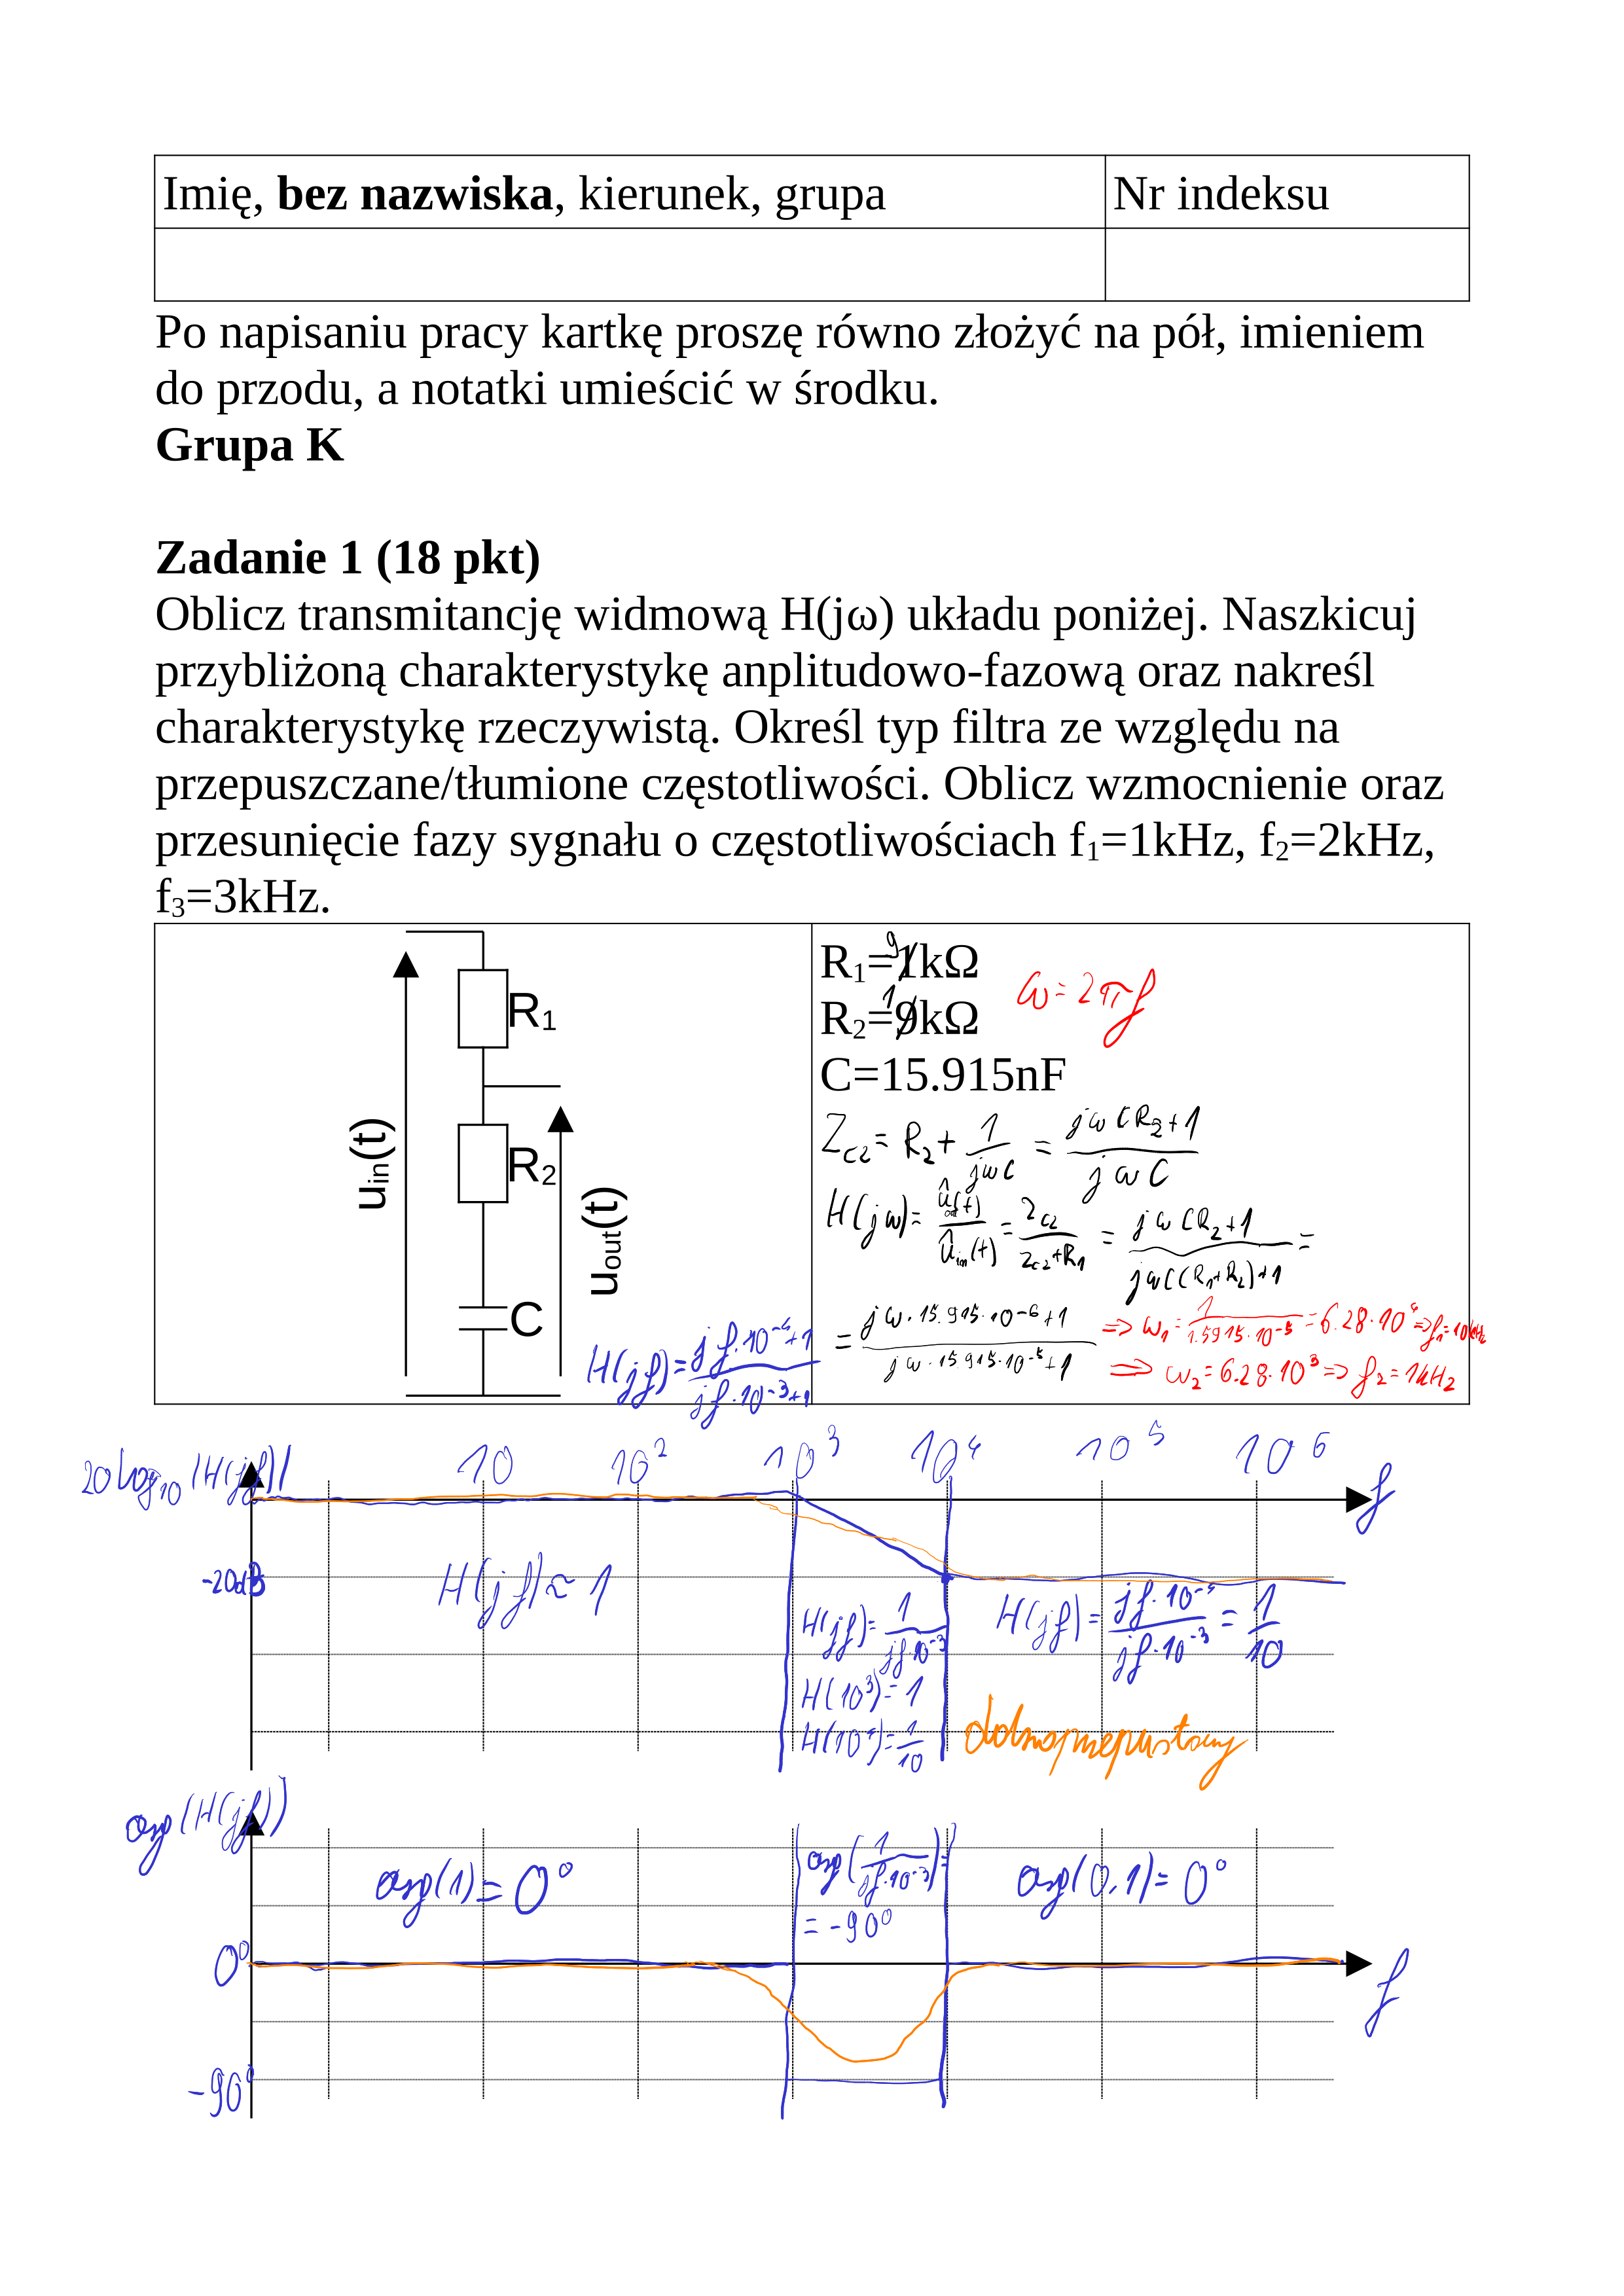 Imię, bez nazwiska, kierunek, grupa
Nr indeksu
Po napisaniu pracy kartkę proszę równo złożyć na pół, imieniem
do przodu, a notatki umieścić w środku.
Grupa K
Zadanie 1 (18 pkt)
Oblicz transmitancję widmową H(jω) układu poniżej. Naszkicuj
przybliżoną charakterystykę anplitudowo-fazową oraz nakreśl
charakterystykę rzeczywistą. Określ typ filtra ze względu na
przepuszczane/tłumione częstotliwości. Oblicz wzmocnienie oraz
przesunięcie fazy sygnału o częstotliwościach f₁=1kHz, f₂=2kHz,
f₃=3kHz.
R₁
R₂
C
uin(t)
uout(t)
9
R₁=1kΩ
1
R₂=9kΩ
C=15.915nF
ω=2πf
Zc2 = R₂ + 1/(jωC) = (jωCR₂+1)/(jωC)
H(jω) = ûout(t)/ûin(t) = Zc2/(Zc2+R₁) = (jωCR₂+1)/(jωC(R₁+R₂)+1) =
= (jω·15.915·10⁻⁶+1)/(jω·15.915·10⁻⁵+1)
=> ω₁ = 1/(1.5915·10⁻⁵) = 6.28·10⁴ => f₁=10kHz
=> ω₂ = 6.28·10³ => f₂ = 1kHz
H(jf) = (jf·10⁻⁴+1)/(jf·10⁻³+1)
20log₁₀|H(jf)|
10
10²
10³
10⁴
10⁵
10⁶
f
-20dB
H(jf)≈1
H(jf)=1/(jf·10⁻³)
H(10³)=1
H(10⁴)=1/10
H(jf) = (jf·10⁻⁴)/(jf·10⁻³) = 1/10
dolnoprzepustowy
arg(H(jf))
arg(1)=0°
arg(1/(jf·10⁻³))=
= -90°
arg(0,1)=0°
0°
f
-90°